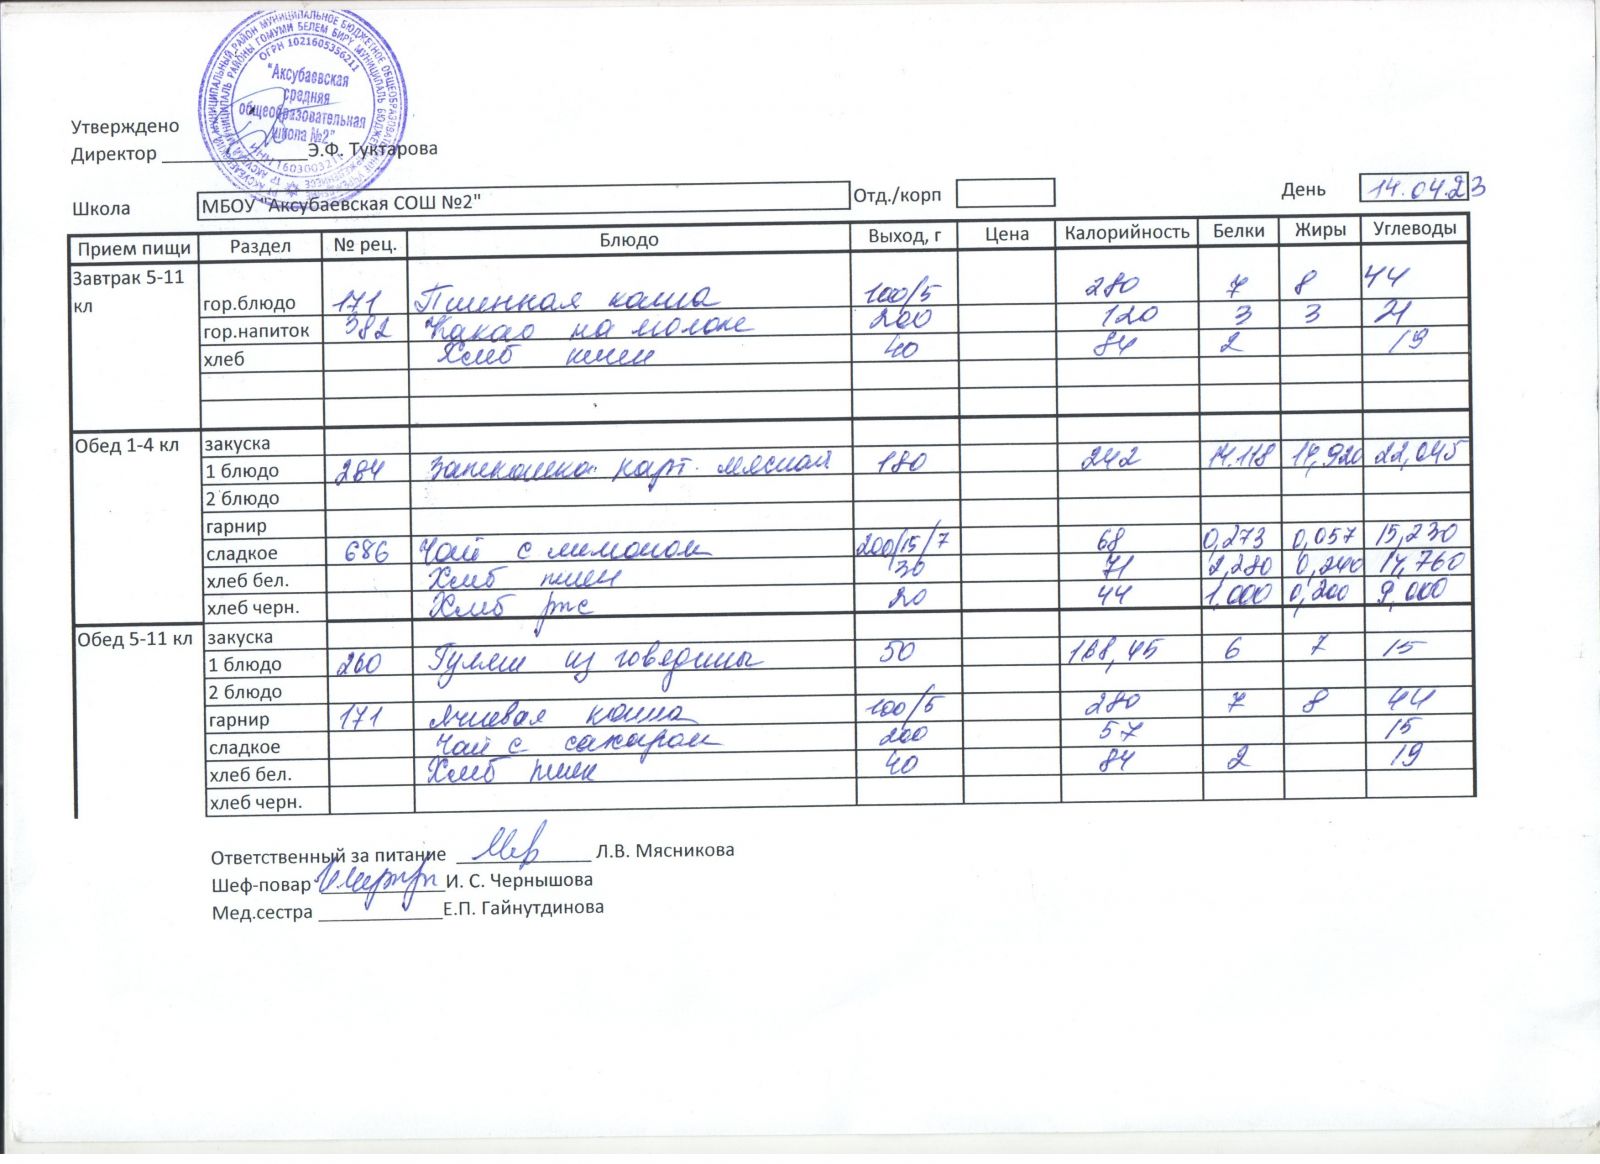 МУНИЦИПАЛЬНОЕ БЮДЖЕТНОЕ ОБЩЕОБРАЗОВАТЕЛЬНОЕ
ОГРН 1021605356211
"Аксубаевская
средняя
общеобразовательная
школа №2"
Утверждено
Директор Э.Ф. Туктарова
Школа МБОУ "Аксубаевская СОШ №2" Отд./корп День 14.04.23
Прием пищи Раздел № рец. Блюдо Выход, г Цена Калорийность Белки Жиры Углеводы
Завтрак 5-11 кл гор.блюдо 171 Пшенная каша 100/5 280 7 8 44
гор.напиток 382 Какао на молоке 200 120 3 3 21
хлеб Хлеб пшен 40 84 2 19
Обед 1-4 кл закуска
1 блюдо 284 Запеканка карт. мясная 180 242 14.118 14,920 22,045
2 блюдо
гарнир
сладкое 686 Чай с лимоном 200/15/7 68 0,273 0,057 15,230
хлеб бел. Хлеб пшен 30 71 2,280 0,240 14,760
хлеб черн. Хлеб рж 20 44 1,000 0,200 9,000
Обед 5-11 кл закуска
1 блюдо 260 Гуляш из говядины 50 168,45 6 7 15
2 блюдо
гарнир 171 Ячневая каша 100/5 280 7 8 44
сладкое Чай с сахаром 200 57 15
хлеб бел. Хлеб пшен 40 84 2 19
хлеб черн.
Ответственный за питание Л.В. Мясникова
Шеф-повар И. С. Чернышова
Мед.сестра Е.П. Гайнутдинова